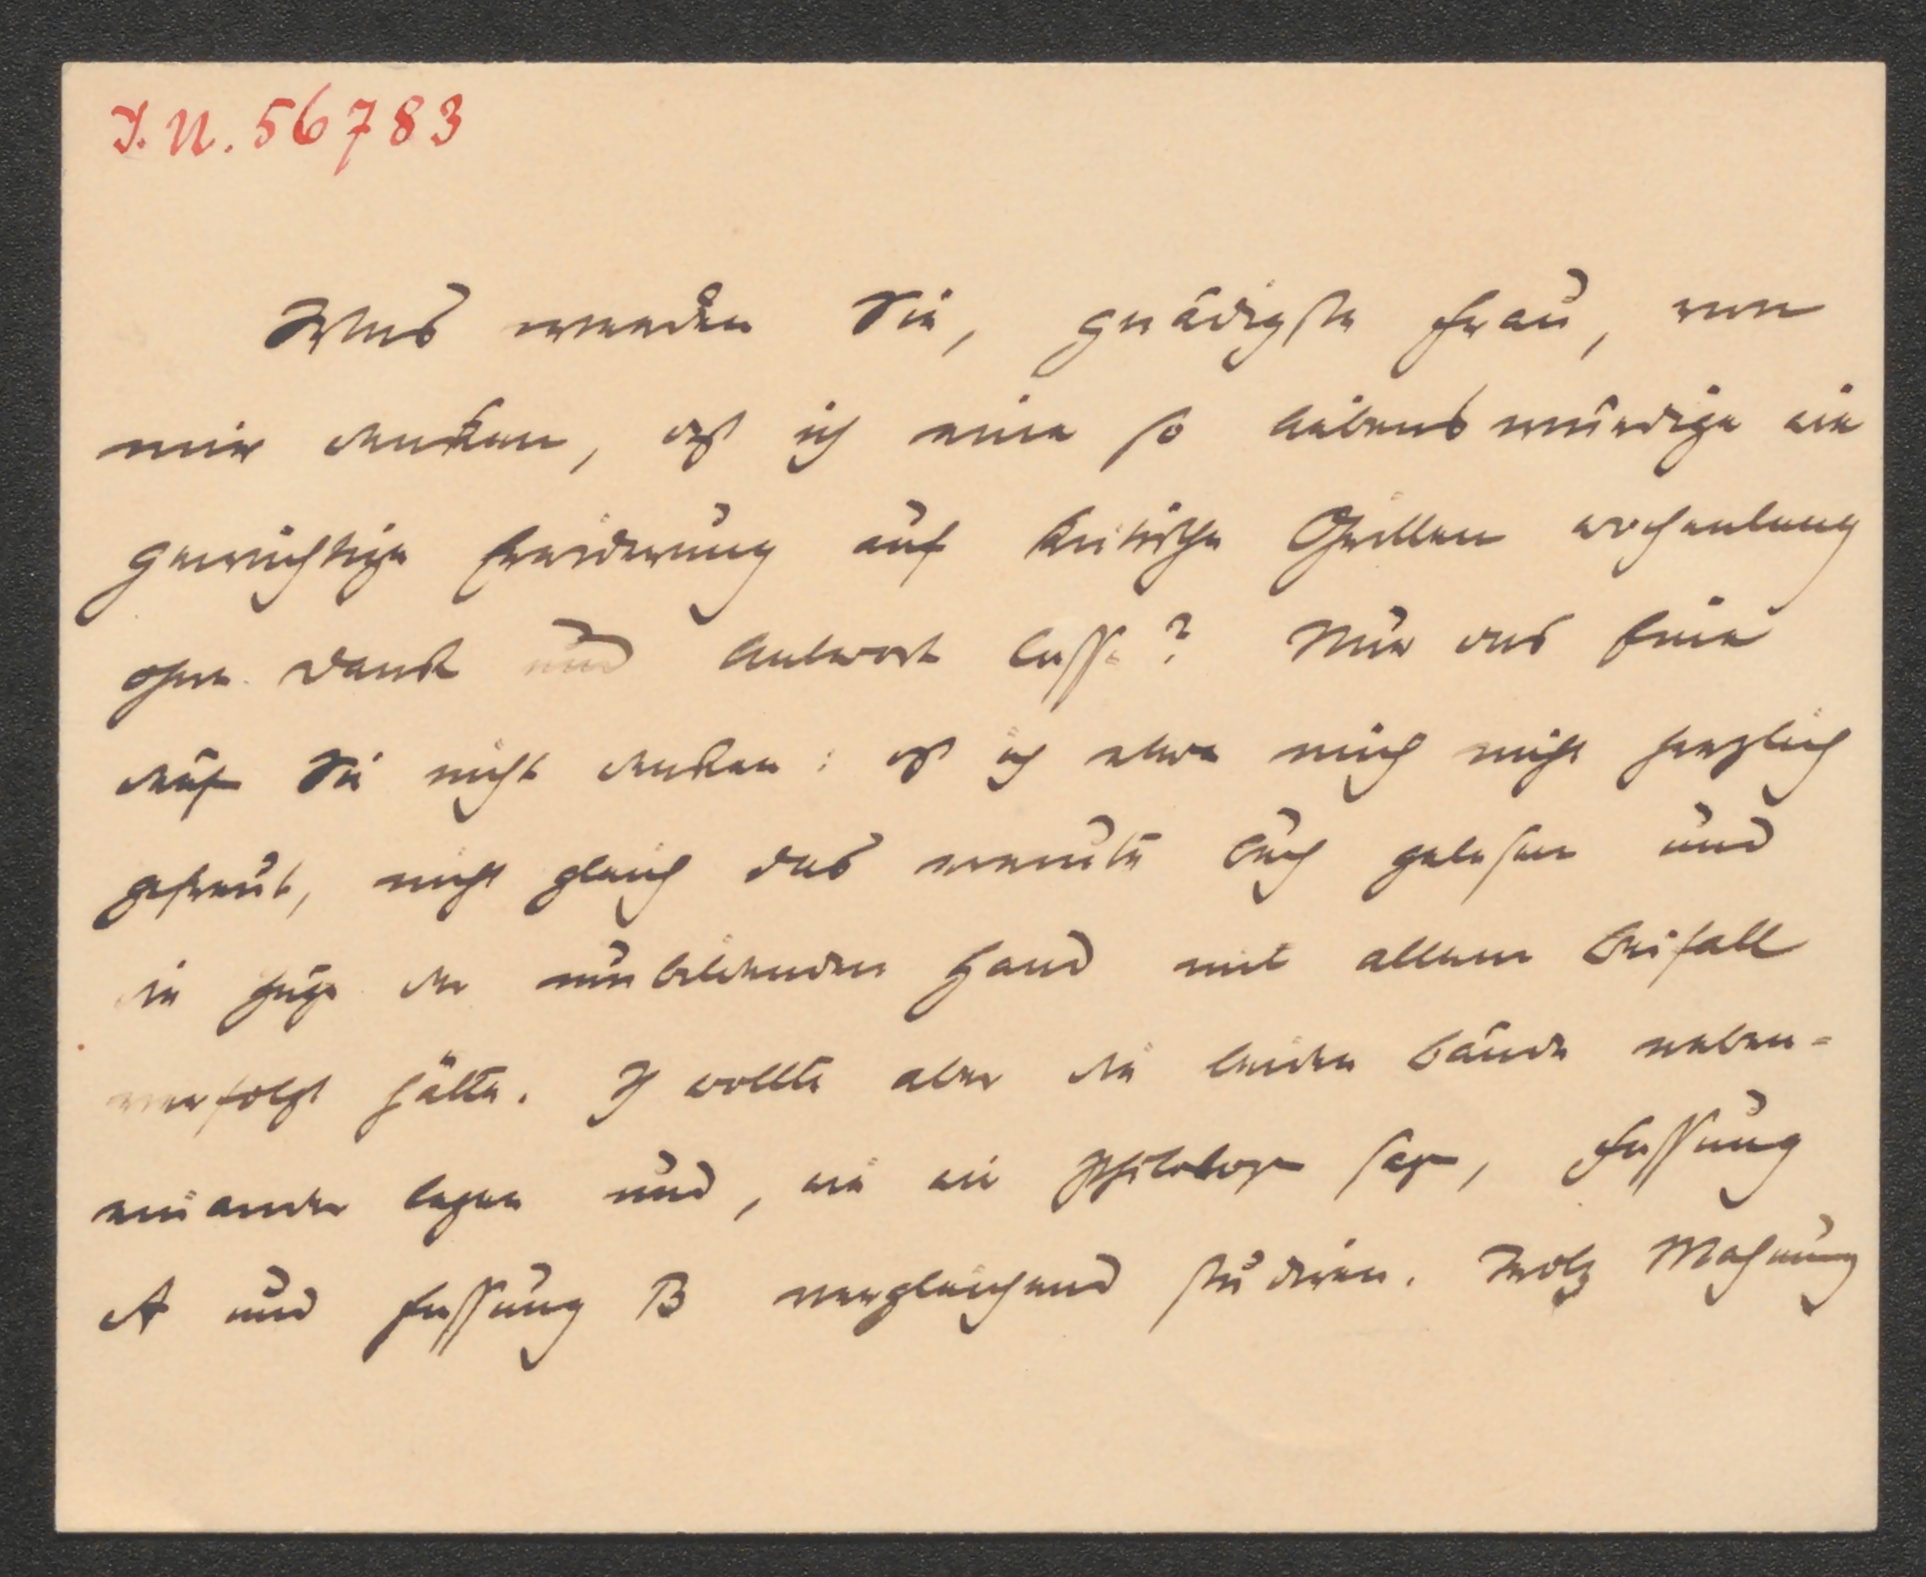 I.N. 56783
Was werden Sie, gnädigste Frau, von
mir denken, dß ich eine so liebenswürdige wie
gewichtige Erwiderung auf kritische Grillen wochenlang
ohne Dank und Antwort lasse? Nur das Eine
darf Sie nicht denken: dß ich etwa mich nicht herzlich
gefreut, nicht gleich das erneute Buch gelesen und
die Züge der neubildenden Hand mit allem Beifall
verfolgt hätte. Ich wollte aber die beiden Bände neben-
einander legen und, wie wir Philologen sagen, Fassung
A und Fassung B vergleichend studiren. Trotz Mahnung